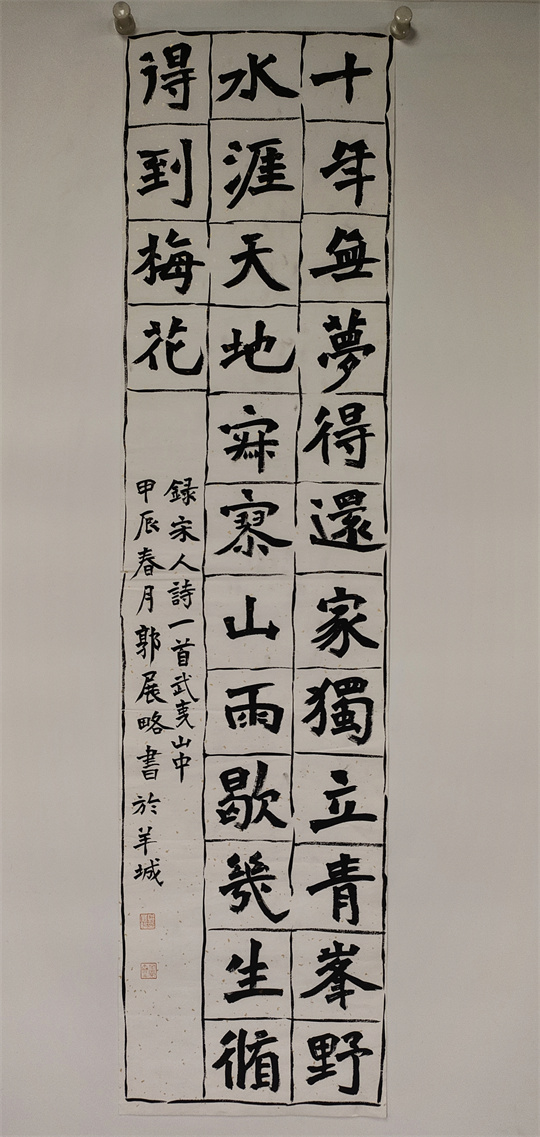 十年無夢得還家獨立青峯野
水涯天地寂寥山雨歇幾生脩
得到梅花
録宋人詩一首武夷山中
甲辰春月郭展略書於羊城